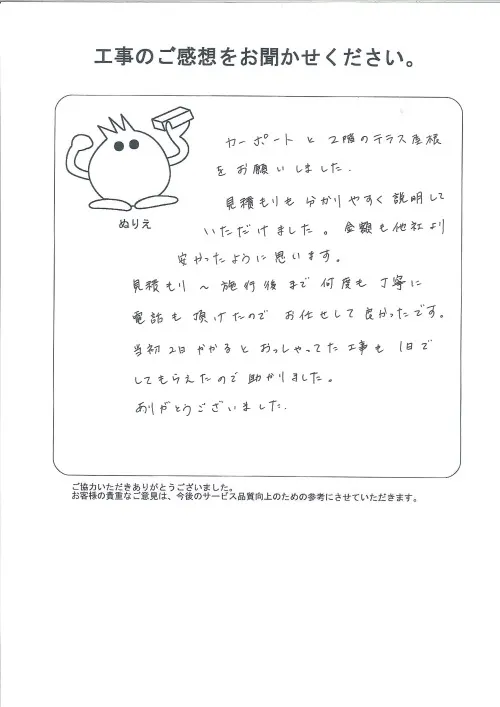 工事のご感想をお聞かせください。
カーポートと2階のテラス屋根
をお願いしました.
見積もりも分かりやすく説明して
いただけました。金額も他社より
安かったように思います。
ぬりえ
見積もり〜施行後まで何度も丁寧に
電話も頂けたのでお任せして良かったです。
当初2日かかるとおっしゃってた工事も1日で
してもらえたので助かりました。
ありがとうございました.
ご協力いただきありがとうございました。
お客様の貴重なご意見は、今後のサービス品質向上のための参考にさせていただきます。